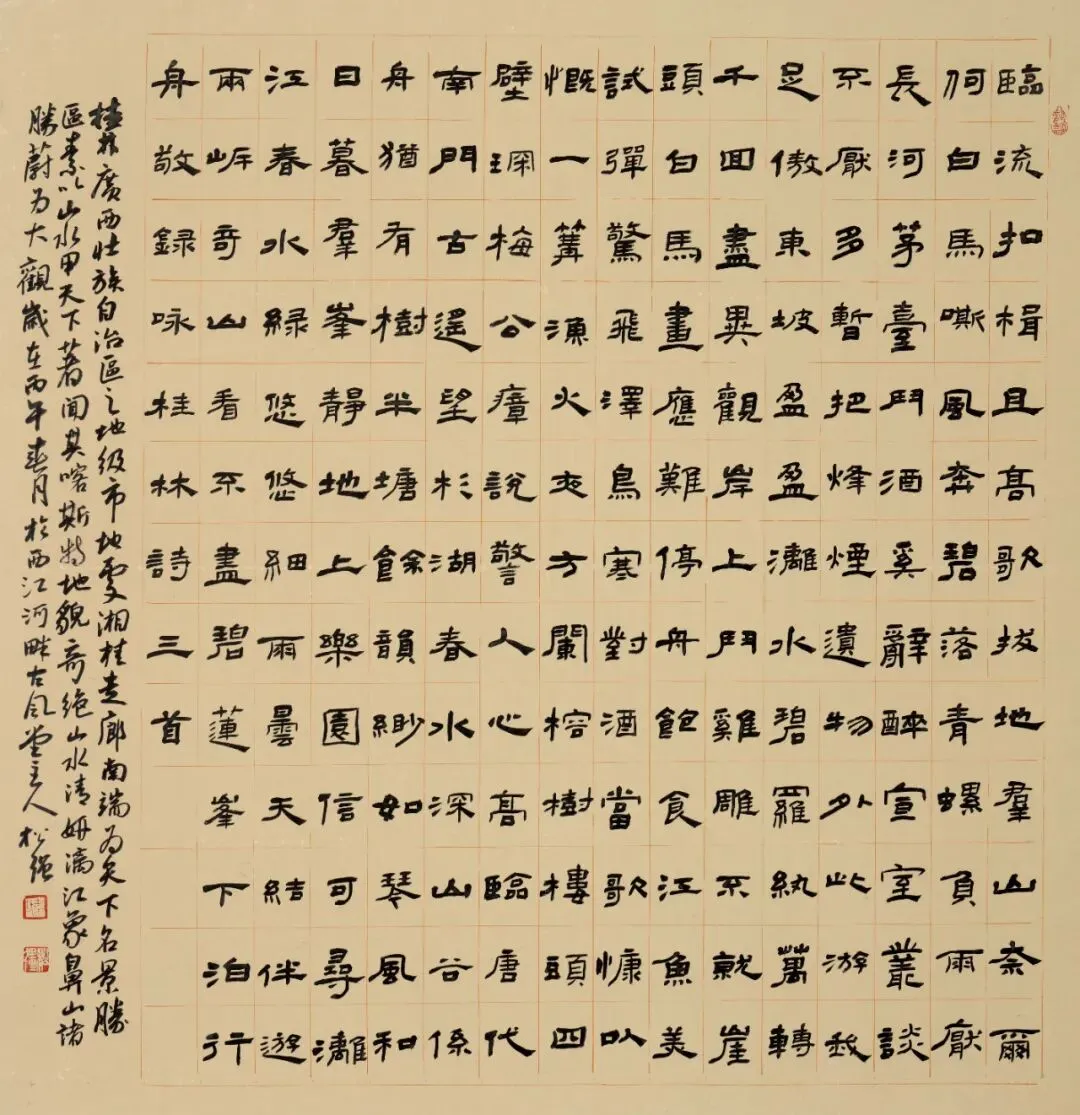 臨流扣楫且高歌拔地羣山奈爾
何白馬嘶風奔碧落青螺負雨厭
長河茅臺鬥酒奚辭醉宣室叢談
不厭多暫把烽煙遺物外此游我
足傲東坡盈盈灕水碧羅紈萬轉
千回盡異觀岸上鬥雞雕不就崖
頭白馬畫應難停舟飽食江魚美
試彈驚飛澤鳥寒對酒當歌慷以
慨一篝漁火夜方闌榕樹樓頭四
壁琛梅公瘴說警人心高臨唐代
南門古遙望杉湖春水深山谷係
舟猶有樹半塘餘韻緲如琴風和
日暮羣峯靜地上樂園信可尋灕
江春水綠悠悠細雨曇天結伴遊
兩岸奇山看不盡碧蓮峯下泊行
舟敬録咏桂林詩三首
桂林廣西壯族自治區之地級市地處湘桂走廊南端為天下名景勝
區素以山水甲天下著聞其喀斯特地貌奇絕山水清妍漓江象鼻山諸
勝蔚為大觀歲在丙午春月於西江河畔古風堂主人松強